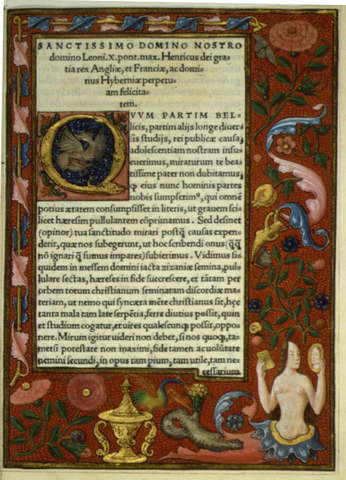 SANCTISSIMO DOMINO NOSTRO
domino Leoni.X.pont.max. Henricus dei gra-
tia rex Angliæ, et Franciæ, ac domi-
nus Hyberniæ perpetu-
am felicita-
tem.
QVVM PARTIM BEL-
licis, partim alijs longe diuer-
sis studijs, rei publicæ causa,
adolescentiam nostram insue-
uerimus, miraturum te bea-
tissime pater non dubitamus,
ꝙ eius nunc hominis partes
nobis sumpserimꝰ, qui omnē
potius ætatem consumpsisset in literis, ut grauem scili-
cet hæresim pullulantem cōprimamus. Sed desinet
(opinor) tua sanctitudo mirari postꝗ̄ causas expen-
derit, quæ nos subegerunt, ut hoc scribendi onus (ꝗ̄ꝗ̄
nō ignari ꝗ̄ sumus impares) subiremus. Vidimus si-
quidem in messem domini iacta zizaniæ semina, pul-
lulare sectas, hæreses in fide succrescere, et tātam per
orbem totum christianum seminatam discordiæ ma-
teriam, ut nemo qui syncæra mēte christianus sit, hęc
tanta mala tam late serpētia, ferre diutius possit, quin
et studium cogatur, et uires qualescunꝗ possit, oppo-
nere. Mirum igitur uideri non debet, si nos quoꝗ, ta-
metsi potestate non maximi, fide tamen ac uoluntate
nemini secundi, in opus tam pium, tam utile, tam ne-
cessarium